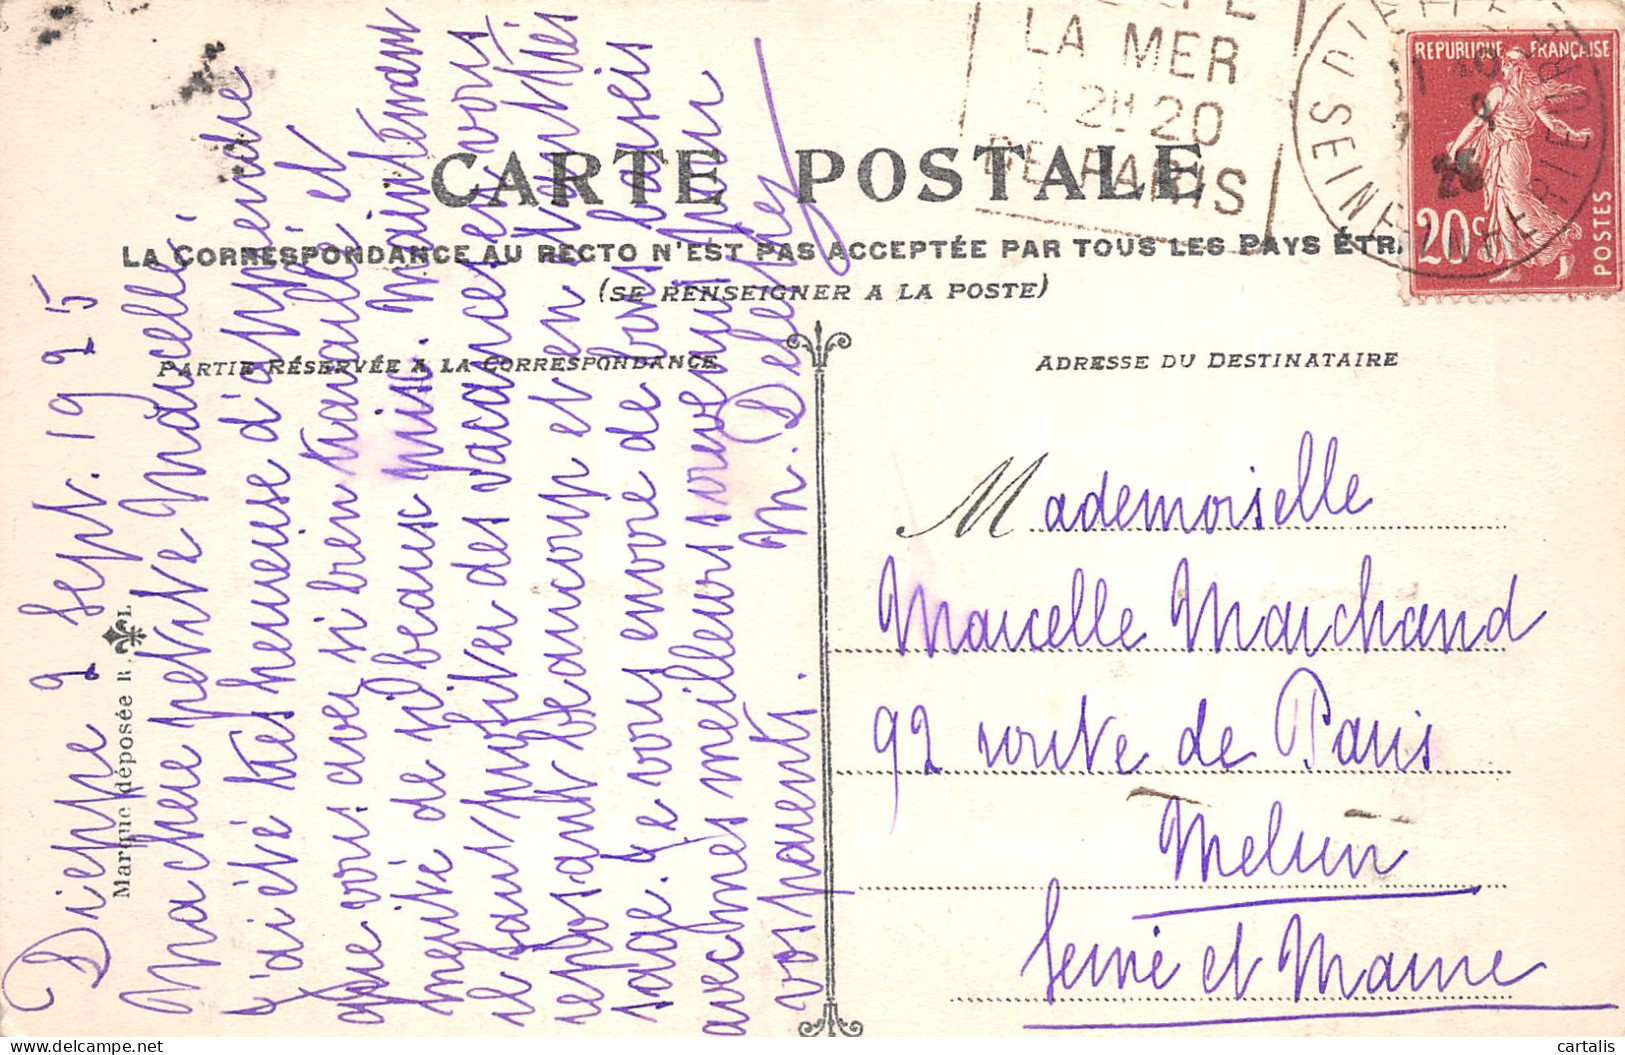 LA MER
A 2H20
DE PARIS
DIEPPE
SEINE INFERIEURE
REPUBLIQUE FRANÇAISE
20c
POSTES
CARTE POSTALE
LA CORRESPONDANCE AU RECTO N'EST PAS ACCEPTÉE PAR TOUS LES PAYS ÉTR.
(SE RENSEIGNER A LA POSTE)
PARTIE RÉSERVÉE A LA CORRESPONDANCE
ADRESSE DU DESTINATAIRE
Marque déposée R. L
Dieppe 9 Sept. 1925
Ma chère petite Marcelle
J'ai été très heureuse d'apprendre
que vous avez si bien travaillé et
mérité de si beaux prix. Maintenant
il faut profiter des vacances en vous
reposant beaucoup et en étant très
sage. Je vous envoie de bons baisers
avec mes meilleurs souvenirs pour
vos parents. M.
Mademoiselle
Marcelle Marchand
92 route de Paris
Melun
Seine et Marne
cartalis
delcampe.net